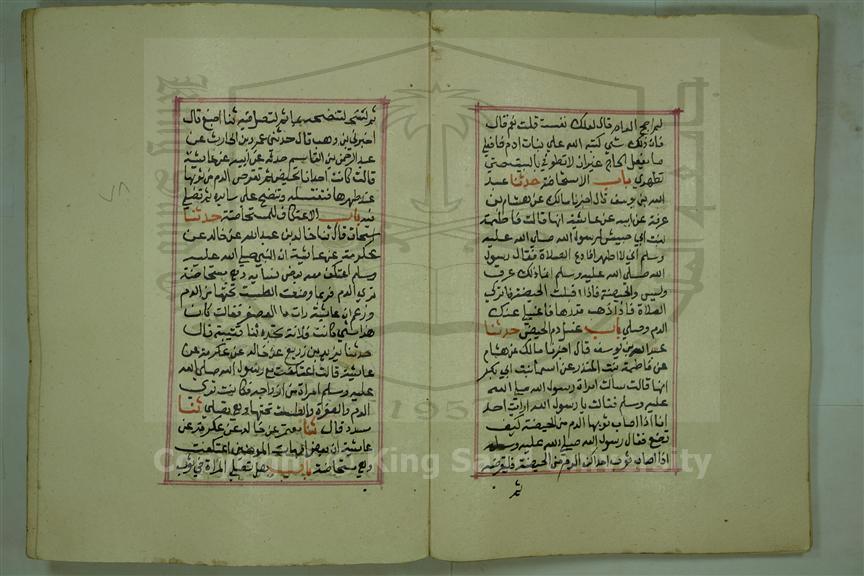 لم احج العام قال لعلك نفست قلت نعم قال
فان ذلك شي كتبه الله على بنات ادم فافعلي
ما يفعل الحاج غير ان لا تطوفي بالبيت حتى
تطهري باب الاستحاضة حدثنا عبد
الله بن يوسف قال اخبرنا مالك عن هشام بن
عروة عن ابيه عن عايشة انها قالت فاطمة
بنت ابي حبيش لرسول الله صلى الله عليه
وسلم اني لا اطهر افادع الصلاة فقال رسول
الله صلى الله عليه وسلم انما ذلك عرق
وليس بالحيضة فاذا اقبلت الحيضة فاتركي
الصلاة فاذا ذهب قدرها فاغسلي عنك
الدم وصلي باب غسل دم الحيض حدثنا
عبد الله بن يوسف قال اخبرنا مالك عن هشام
عن فاطمة بنت المنذر عن اسما بنت ابي بكر
انها قالت سالت امراة رسول الله صلى الله
عليه وسلم فقالت يا رسول الله ارايت احد
انا اذا اصاب ثوبها الدم من الحيضة كيف
تصنع فقال رسول الله صلى الله عليه وسلم
اذا اصاب ثوب احداكن الدم من الحيضة فلتقرصه
ثم
ثم لتنضحه بماء ثم لتصلي فيه ثنا اصبغ قال
اخبرني بن وهب قال حدثني عمرو بن الحارث عن
عبد الرحمن بن القاسم حدثه عن ابيه عن عايشة
قالت كانت احدانا تحيض ثم تقترص الدم من ثوبها
عند طهرها فتغسله وتنضح على سايره ثم تصلي
فيه باب الاعتكاف للمستحاضة حدثنا
اسحاق قال ثنا خالد بن عبد الله عن خالد عن
عكرمة عن عايشة ان النبي صلى الله عليه
وسلم اعتكف معه بعض نسايه وهي مستحاضة
ترى الدم فربما وضعت الطست تحتها من الدم
وزعم ان عايشة رات ماء العصفر فقالت كان
هذا شي كانت فلانة تجده ثنا قتيبة قال
حدثنا يزيد بن زريع عن خالد عن عكرمة عن
عايشة قالت اعتكفت مع رسول الله صلى الله
عليه وسلم امراة من ازواجه فكانت ترى
الدم والصفرة والطست تحتها وهي تصلي ثنا
مسدد قال ثنا معتمر عن خالد عن عكرمة عن
عايشة ان بعض امهات المومنين اعتكفت
وهي مستحاضة باب هل تصلي المراة في ثوب